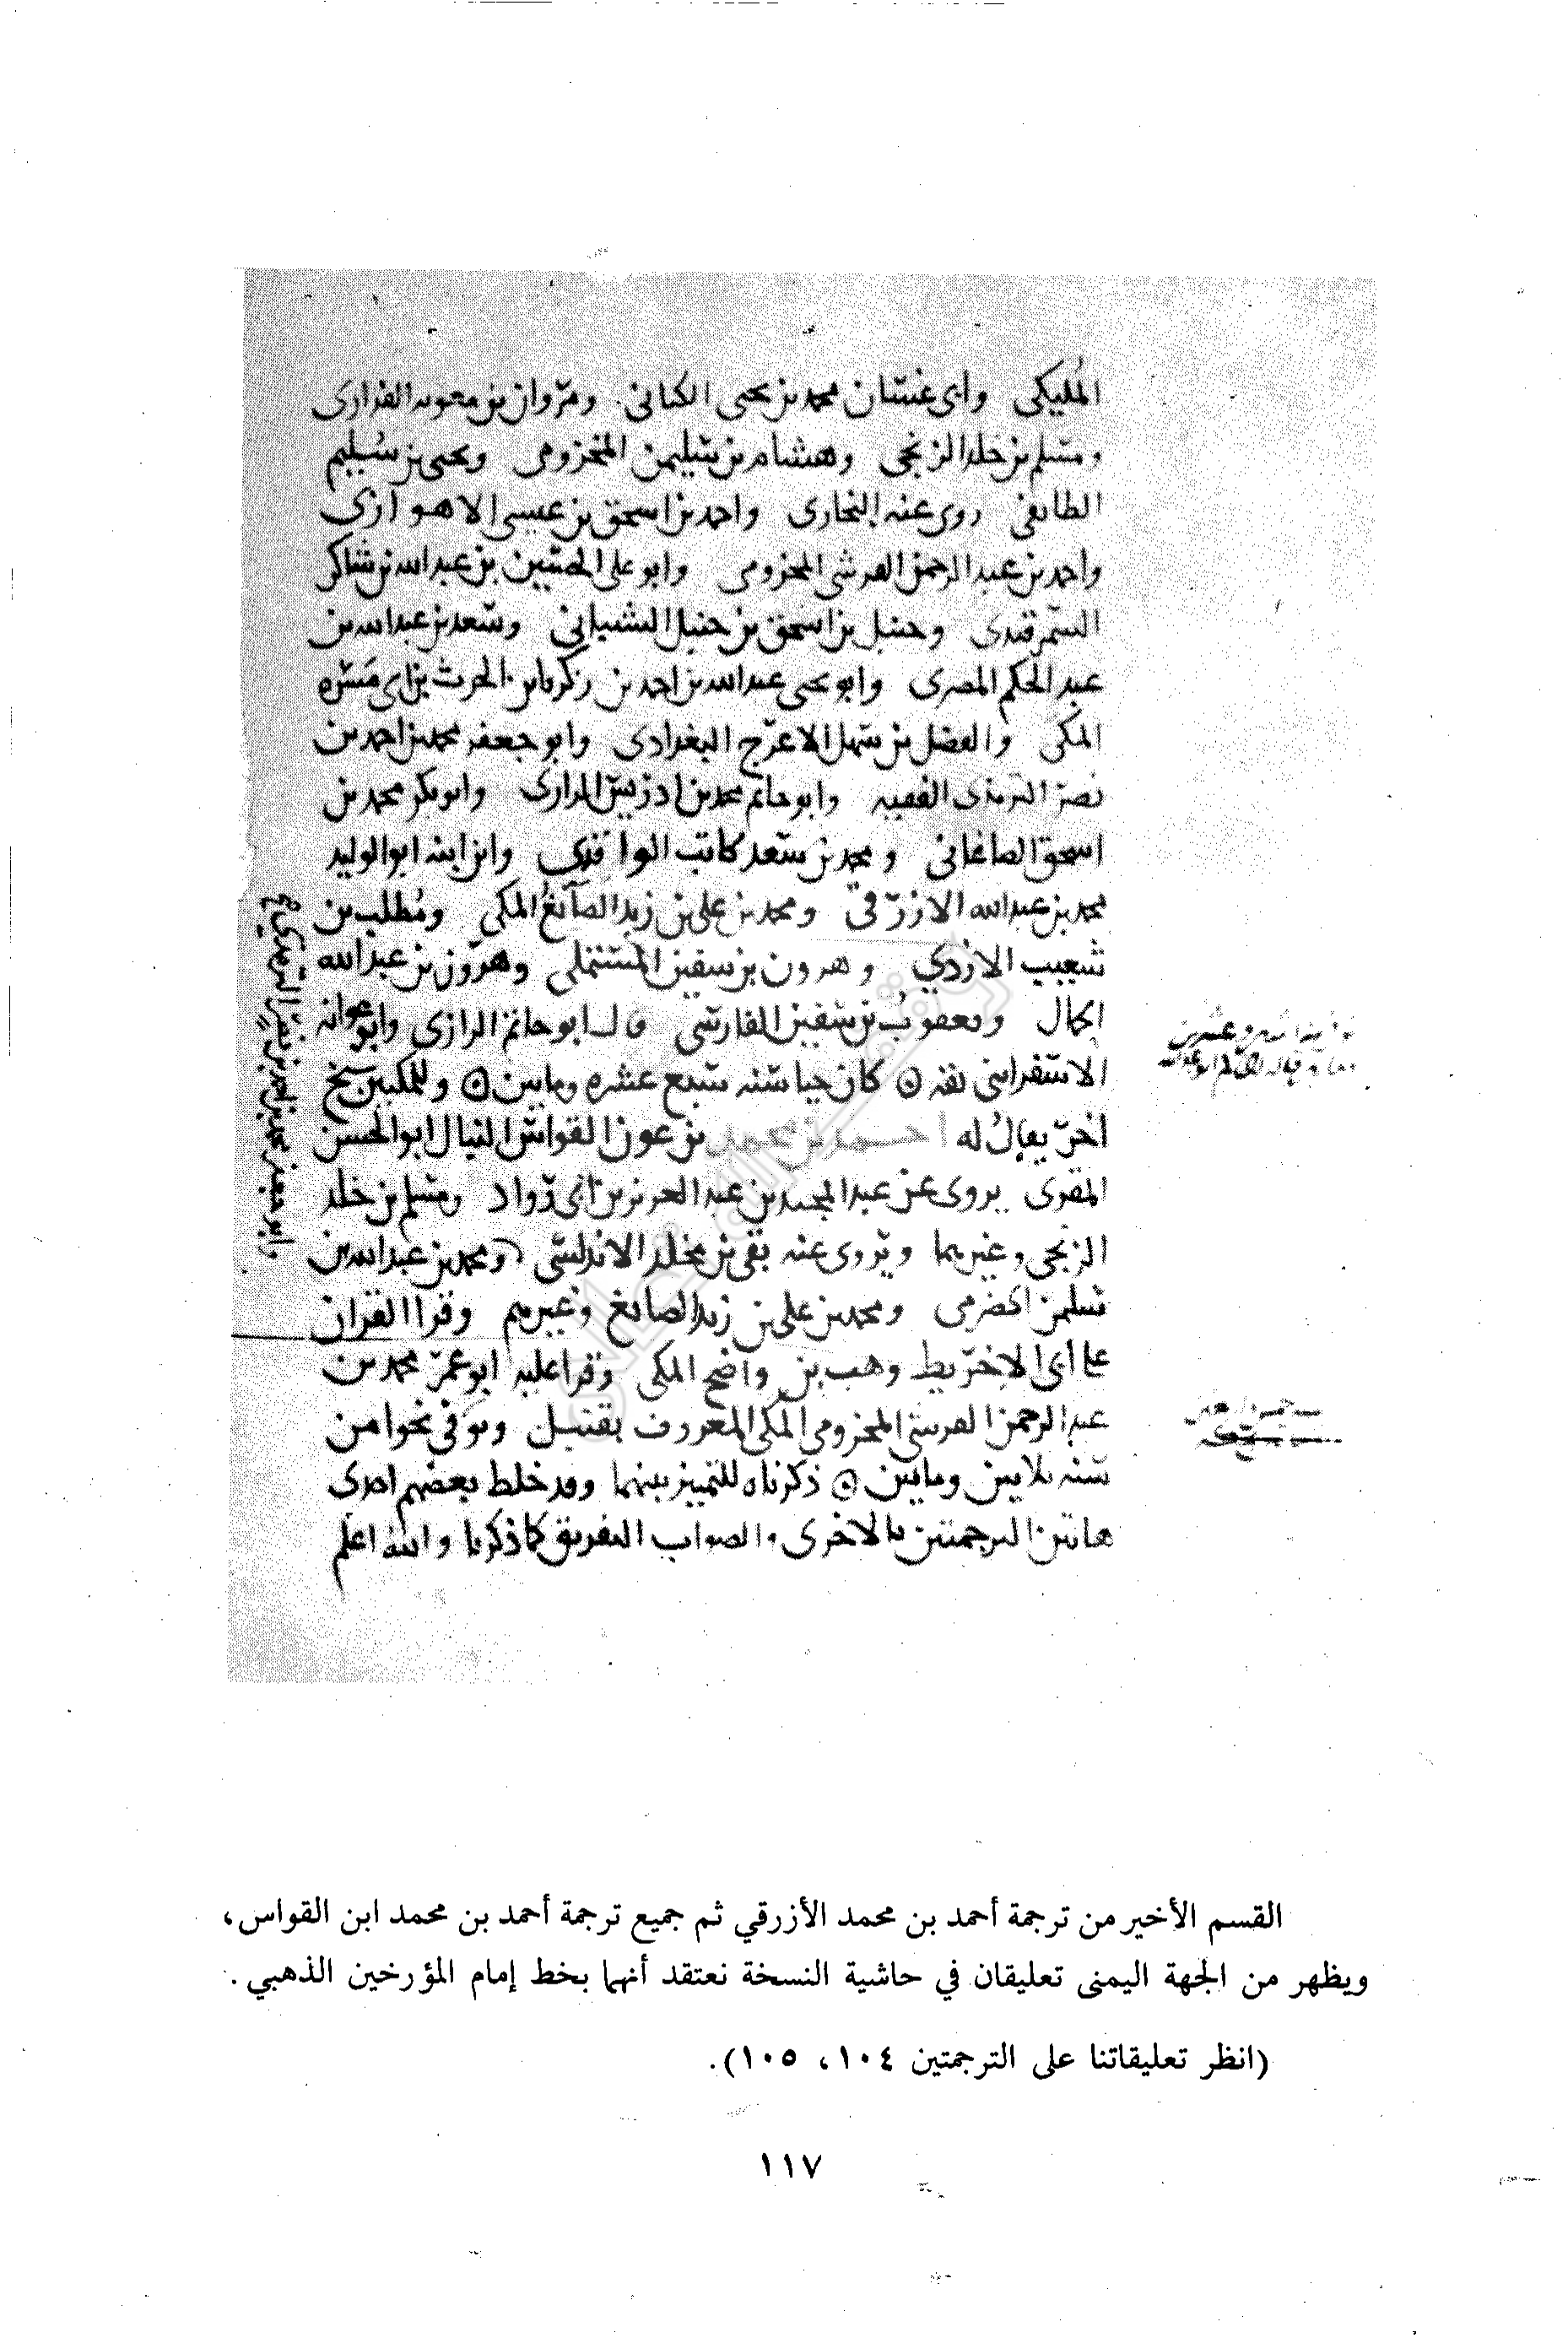 المُليكى وابى غسّان محمد بن يحيى الكنانى ومرّوان بن معويه الفزارى
ومسلم بن خلد الزنجى وهشام بن سليمن المخزومى ويحيى بن سُليم
الطائفى روى عنه البخارى واحمد بن اسحق بن عيسى الاهوازى
واحمد بن عبد الرحمن القرشى المخزومى وابو على الحسين بن عبد الله بن شاكر
السمرقندى وحنبل بن اسحق بن حنبل الشيبانى وسعد بن عبد الله بن
عبد الحكم المصرى وابو يحيى عبد الله بن احمد بن زكريا بن الحرث بن ابى مَسَرّه
المكى والفضل بن سهل الاعرّج البغدادى وابو جعفر محمد بن احمد بن
نصر الترمذى الفقيه وابو حاتم محمد بن ادريس الرازى وابو بكر محمد بن
اسحق الصاغانى ومحمد بن سعد كاتب الواقدى وابن ابنه ابو الوليد
محمد بن عبد الله الازرّقى ومحمد بن على بن زيد الصآئغ المكى ومُطلب بن
شعيب الازدي وهرون بن سفين المستملى وهرّون بن عبد الله
الحمال ويعقوب بن سفين الفارسى قال ابو حاتم الرازى وابو عوانه
الاسفراينى ثقه ۞ كان حيا سنه سبع عشره ومايتين ۞ وللمكيين شيخ
اخر يقالُ له احمد بن محمد بن عون القواس النبال ابو الحسن
المقرى يروى عن عبد المجيد بن عبد العزيز بن ابى روّاد ومسلم بن خلد
الزنجى وغيرهما ويروى عنه بقى بن مخلد الاندلسى ومحمد بن عبد الله بن
سليمن الحضرمى ومحمد بن على بن زيد الصائغ وغيرهم وقرا القران
على ابى الاخريط وهب بن واضح المكى وقرا عليه ابو عمرّ محمد بن
عبد الرحمن القرشى المخزومى المكى المعروف بقنبل وتوفى نحوا من
سنه ثلاثين ومايتين ۞ ذكرناه للتمييز بينهما وقد خلط بعضهم احدى
هاتين الترجمتين بالاخرى والصواب التفريق كما ذكرنا والله اعلم
وابو جعفر محمد بن احمد بن نصر الترمذى
القسم الأخير من ترجمة أحمد بن محمد الأزرقي ثم جميع ترجمة أحمد بن محمد ابن القواس،
ويظهر من الجهة اليمنى تعليقان في حاشية النسخة نعتقد أنهما بخط إمام المؤرخين الذهبي.
(انظر تعليقاتنا على الترجمتين ١٠٤، ١٠٥).
١١٧